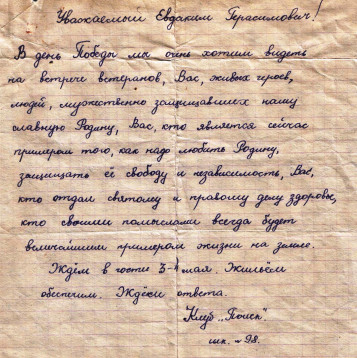 Уважаемый Евдаким Герасимович!
В день Победы мы очень хотим видеть
на встрече ветеранов, Вас, живых героев,
людей, мужественно защищавших нашу
славную Родину, Вас, кто является сейчас
примером того, как надо любить Родину,
защищать её свободу и независимость, Вас,
кто отдал святому и правому делу здоровье,
кто своими помыслами всегда будет
величайшим примером жизни на земле.
Ждём в гости 3-4 мая. Жильём
обеспечим. Ждём ответа.
Клуб „Поиск"
шк. № 98.